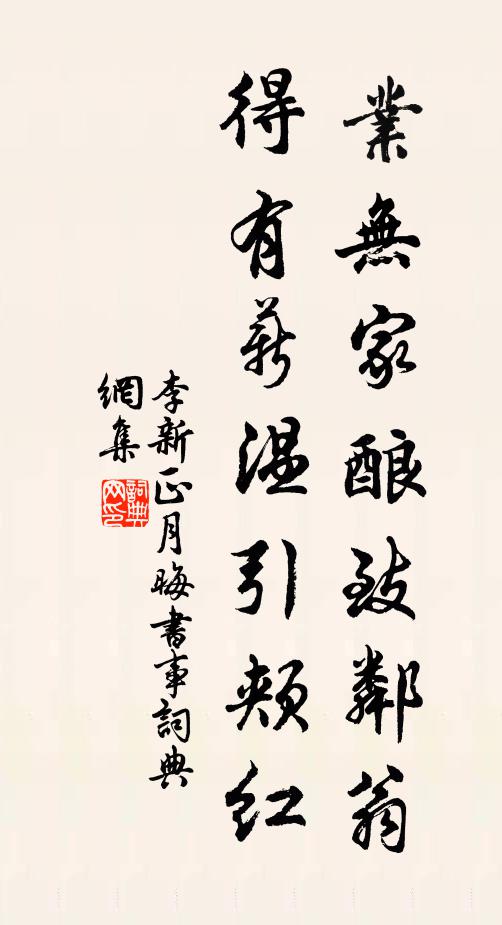 業無家酿致鄰翁
得有薪温引頰紅
李新正月晦書事詞典
網集
詞典
网印